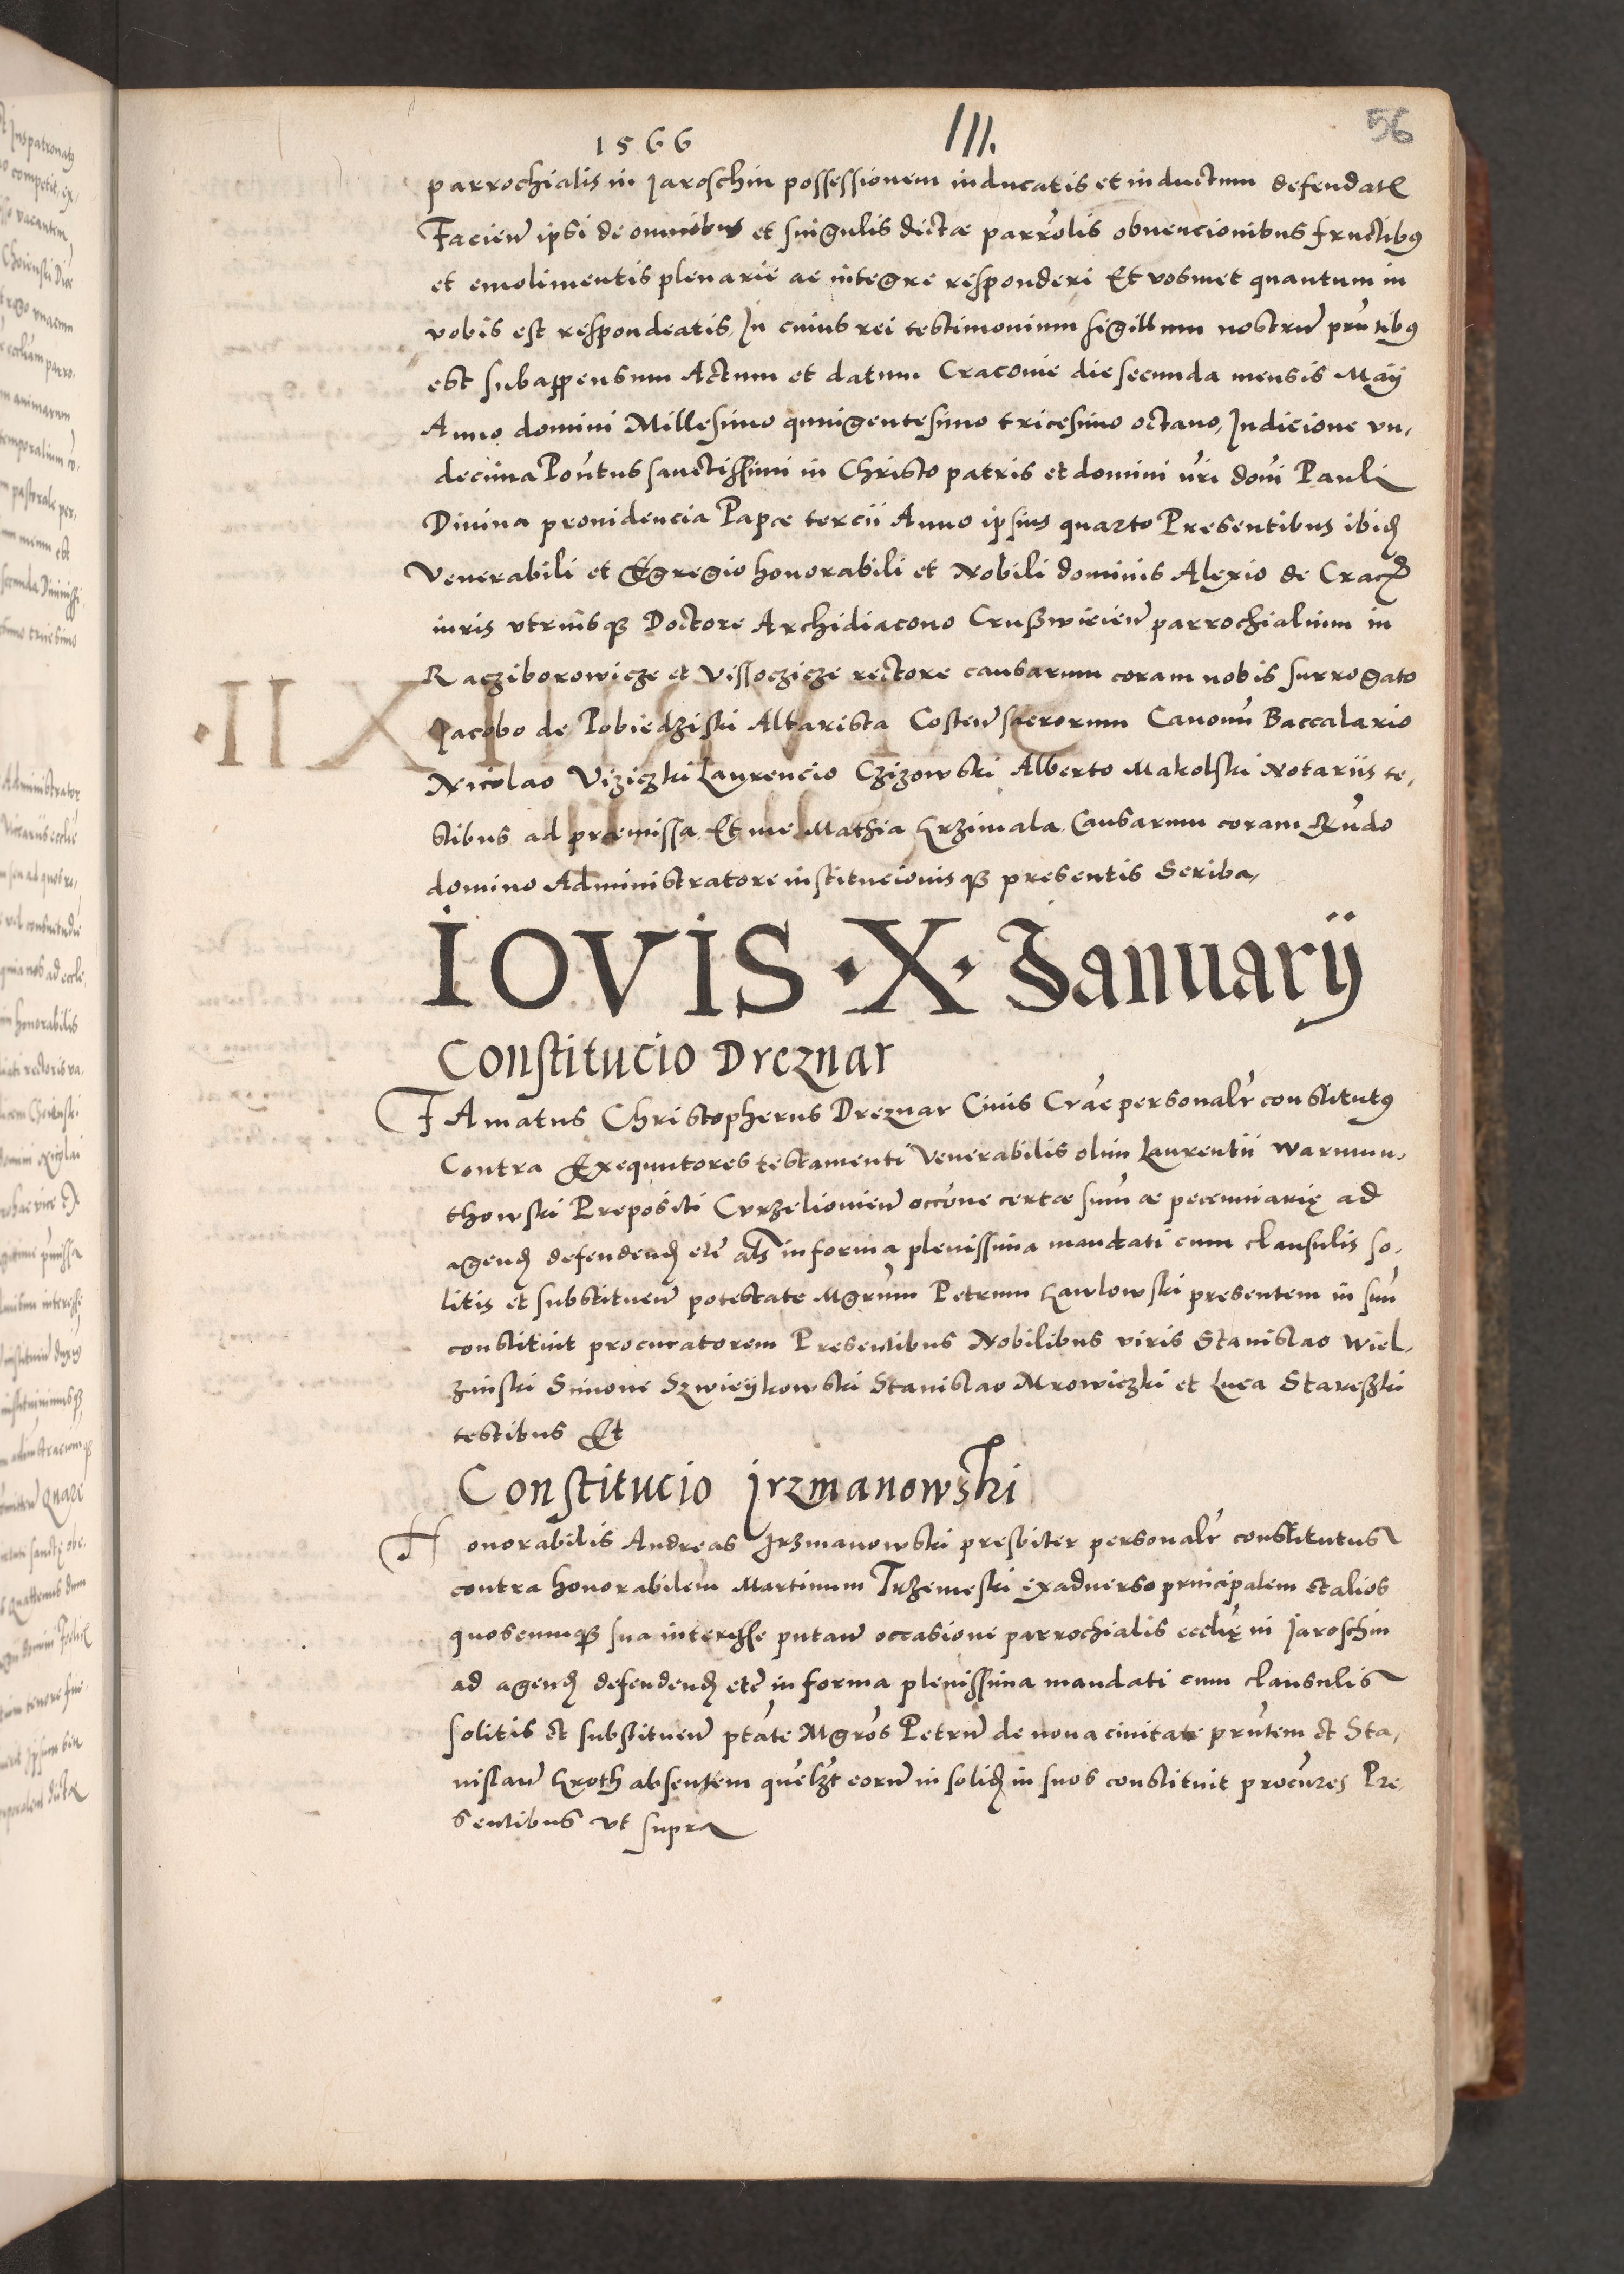 1566 III. 56
parrochialis in Jaroschin possessionem inducatis et inductum defendat
Facien̄ ipsi de omnibus et singulis dictæ parro͞lis obuencionibus fructibus
et emolimentis plenarie ac integre responderi Et vosmet quantum in
vobis est respondeatis, In cuius rei testimonium sigillum nostrū pn̄tibus
est subappensum Actum et datum Cracouie die secunda mensis Maij
Anno domini Millesimo quingentesimo tricesimo octauo, Indicione vn,
decima Pon̄tus sanctissimi in Christo patris et domini nr̄i don̄i Pauli
Diuina prouidencia Papæ tercii Anno ipsius quarto Presentibus ibid
Venerabili et Egregio honorabili et Nobili dominis Alexio de Crac
iuris vtriusq Doctore Archidiacono Crusswicien̄ parrochialium in
Racziborowicze et Vissoczicze rectore causarum coram nobis surrogato
Jacobo de Pobiedziski Altarista Costen̄ sacrorum Canonū Baccalario
Nicolao Viziczki Laurencio Czizowski Alberto Makolski Notariis te,
stibus ad præmissa Et me Mathia Krzimala Causarum coram Rn̄do
domino Administratore institucionisq presentis Scriba,
IOVIS · X · Januarij
Constitucio Dreznar
FAmatus Christopherus Dreznar Ciuis Crac̄ personalr̄ constitutus
Contra Exequutores testamenti Venerabilis olim Laurentii Warmun,
thowski Prepositi Curzelouien̄ occōne certæ sum̄æ pecunniarię ad
agend defendend etc̄ als̄ in forma plenissima mandati cum clausulis so,
litis et substituen̄ potestate Mgr̄um Petrum Kawlowski presentem in suū
constituit procuratorem Presentibus Nobilibus viris Stanislao Wiel,
zinski Simone Szwieykowski Stanislao Mrowiczki et Luca Stareszki
testibus Et
Constitucio Jrzmanowski
Honorabilis Andreas Jrzmanowski presbiter personalr̄ constitutus
contra honorabilem Martinum Trzemeski exaduerso principalem et alios
quoscumq sua interesse putan̄ occasione parrochialis eccl̄ię in Jaroschin
ad agend defendend etc̄ in forma plenissima mandati cum clausulis
solitis et substituen̄ ptāte Mgr̄os Petrū de noua ciuitate pn̄tem et Sta,
nislaū Kroth absentem quēlz̄t eorū in solid in suos constituit procūres Pre,
sentibus vt supra